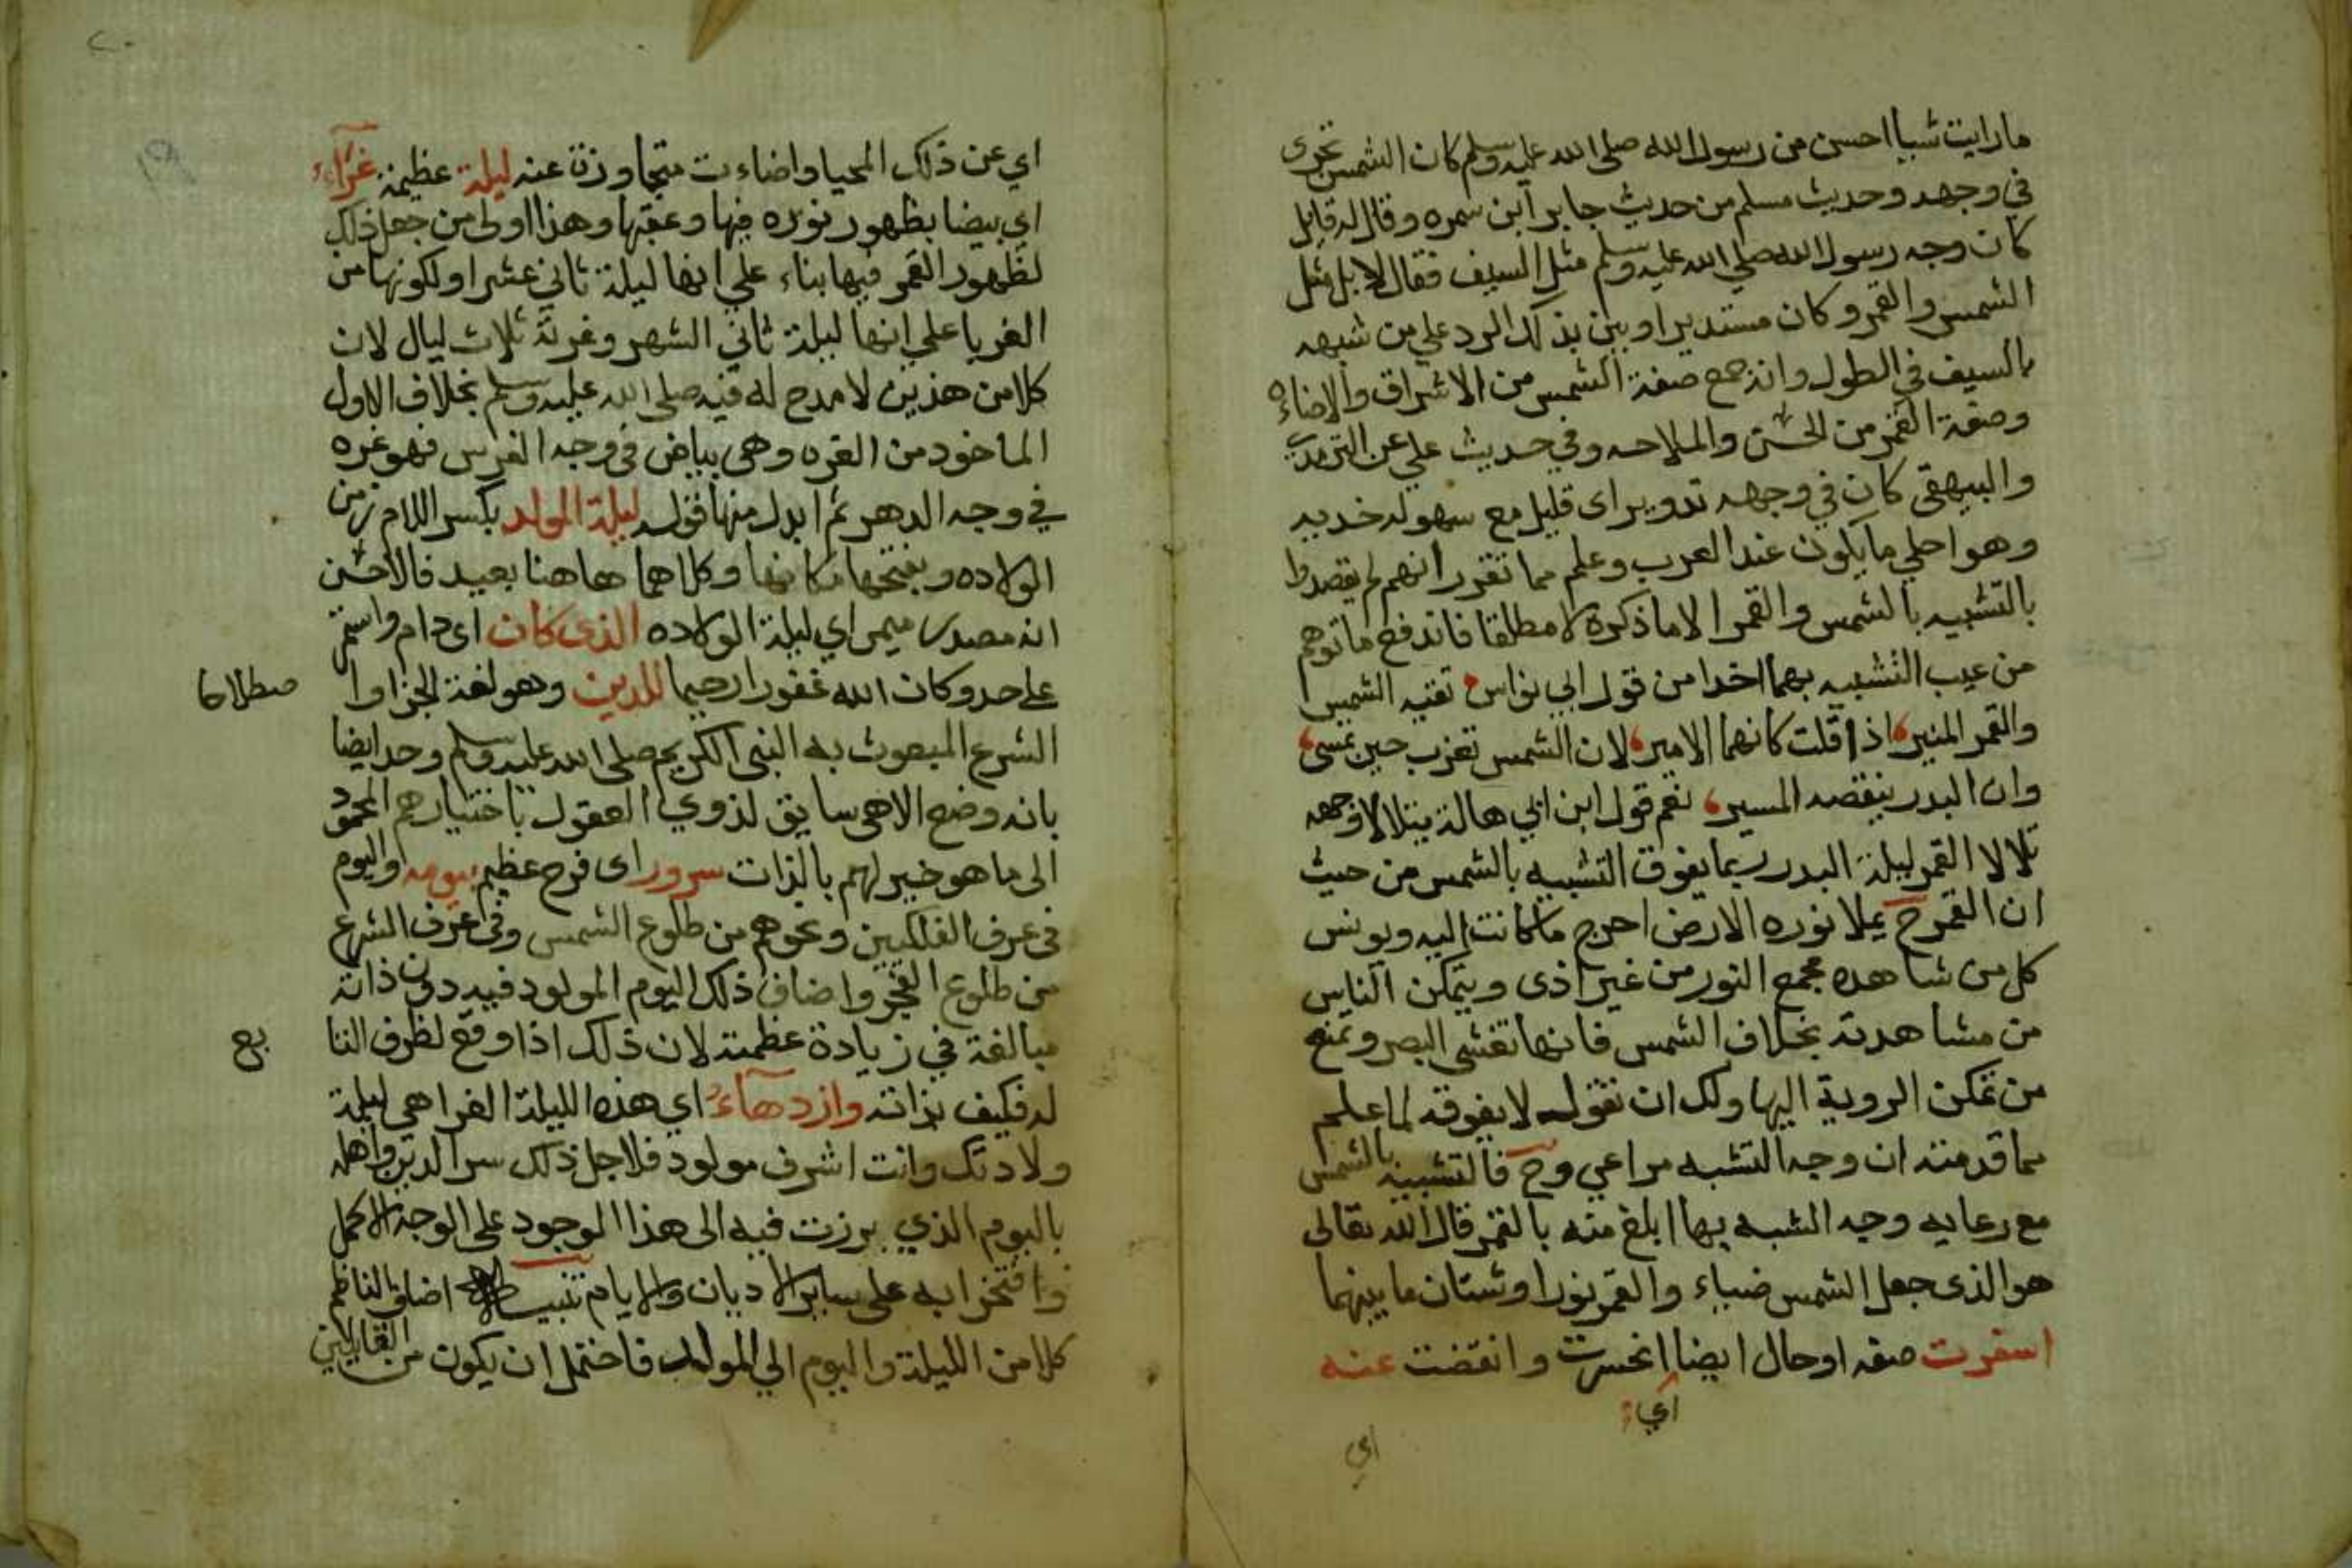 مارايت شيا احسن من رسول الله صلى الله عليه وسلم كان الشمس تجرى
في وجهه وحديث مسلم من حديث جابر ابن سمره وقال له قايل
كان وجه رسول الله صلى الله عليه وسلم مثل السيف فقال لا بل مثل
الشمس والقمر وكان مستديرا وبين بذلك الرد علي من شبهه
بالسيف في الطول وانه جمع صفة الشمس من الاشراق والاضاءه
وصفة القمر من الحسن والملاحه وفي حديث علي عن الترمذي
والبيهقى كان في وجهه تدوير اى قليل مع سهولة خديه
وهو احلي مايكون عند العرب وعلم مما تقرر انهم لم يقصدوا
بالتشبيه بالشمس والقمر الا ماذكرة لا مطلقا فاندفع ماتوهم
من عيب التشبيه بهما اخدا من قول ابي نواس تتيه الشمس
والقمر المنير اذا قلت كانهما الامير لان الشمس تغرب حين تمسى
وان البدر ينقصه المسير نعم قول ابن ابي هالة يتلالا وجهه
تلالا القمر ليلة البدر ربما يفوق التشبيه بالشمس من حيث
ان القمر ح يملا نوره الارض احرج ما كانت اليه ويونس
كل من شاهده مجمع النور من غير اذى ويتمكن الناس
من مشاهدته بخلاف الشمس فانها تغشى البصر وتمنع
من تمكن الروية اليها ولك ان تقول لا يفوقه لما علم
مما قدمته ان وجه التشبه مراعي وح فالتشبيه بالشمس
مع رعايه وجه الشبه بها ابلغ منه بالقمر قال الله تعالى
هو الذى جعل الشمس ضياء والقمر نورا وشتان مابينهما
اسفرت صفه او حال ايضا انحسرت وانقضت عنه
اي
اي
٢٠
١٩
اي عن ذلك المحيا واضاءت متجاوزة عنه ليلة عظيمة غراء
اى بيضا بظهور نوره فيها وعقبها وهذا اولى من جعل ذلك
لظهور القمر فيها بناء علي انها ليلة ثاني عشر اولكونها من
الغر يا علي انها ليلة ثاني الشهر وغرته ثلاث ليال لان
كلا من هذين لامدح له فيه صلى الله عليه وسلم بخلاف الاول
الماخود من الغره وهى بياض في وجه الفرس فهو غره
في وجه الدهر ثم ابدل منها قوله ليلة المولد بكسر اللام زمن
الولاده وبفتحها مكانها وكلاهما هاهنا بعيد فالاحسن
انه مصدر ميمى اي ليلة الولاده الذى كان اى دام واستمر
علي حد وكان الله غفورا رحيما للدين وهو لغة الجزا وا
صطلاحا
الشرع المبعوث به النبى الكريم صلى الله عليه وسلم وحد ايضا
بانه وضع الاهى سايق لذوي العقول باختيارهم المحمود
الى ما هو خير لهم بالذات سرور اى فرح عظيم بيومه واليوم
فى عرف الفلكيين ونحوهم من طلوع الشمس وفى عرف الشرع
من طلوع الفجر واضاف ذلك اليوم المولود فيه دون ذاته
مبالغة في زيادة عظمته لان ذلك اذا وقع لظرف التا
بع
له فكيف بذاته وازدهاء اي هذه الليلة الغرا هي ليلة
ولادتك وانت اشرف مولود فلاجل ذلك سر الدين واهله
باليوم الذي برزت فيه الى هذا الوجود على الوجه الاكمل
وافتخر ابه على ساير الاديان والايام تنبيه اضاف الناظم
كلا من الليلة واليوم الي المولد فاحتمل ان يكون من القايلين